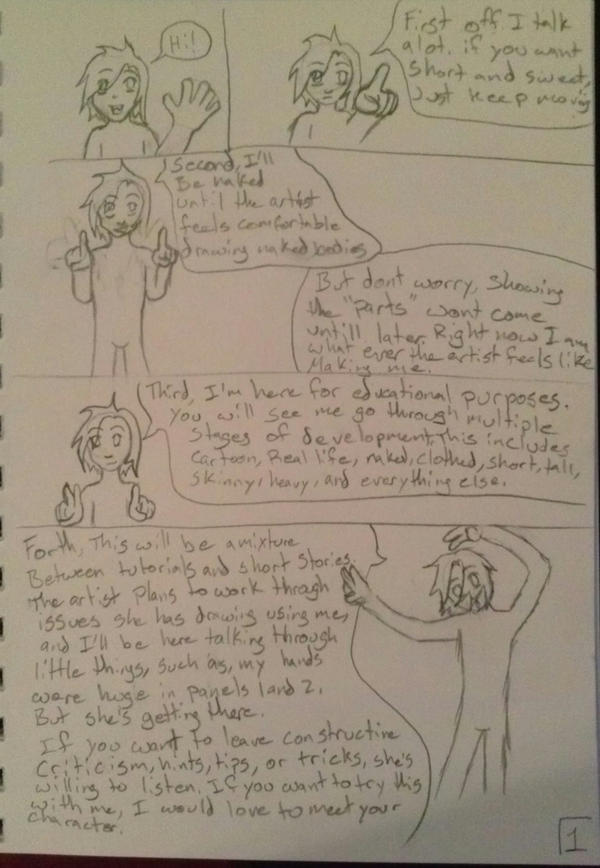 Hi!
First off I talk
alot. if you want
short and sweet,
Just keep moving
Second, I'll
Be naked
until the artist
feels comfortable
drawing naked bodies
But dont worry, showing
the "parts" wont come
untill later. Right now I am
what ever the artist feels like
Making me.
Third, I'm here for educational purposes.
You will see me go through multiple
stages of development. This includes
Cartoon, Real life, naked, clothed, short, tall,
skinny, heavy, and everything else.
Forth, This will be a mixture
Between tutorials and short stories.
The artist plans to work through
issues she has drawing using me,
and I'll be here talking through
little things, such as, my hands
were huge in panels 1 and 2.
But she's getting there.
If you want to leave constructive
criticism, hints, tips, or tricks, she's
willing to listen. If you want to try this
with me, I would love to meet your
character.
1